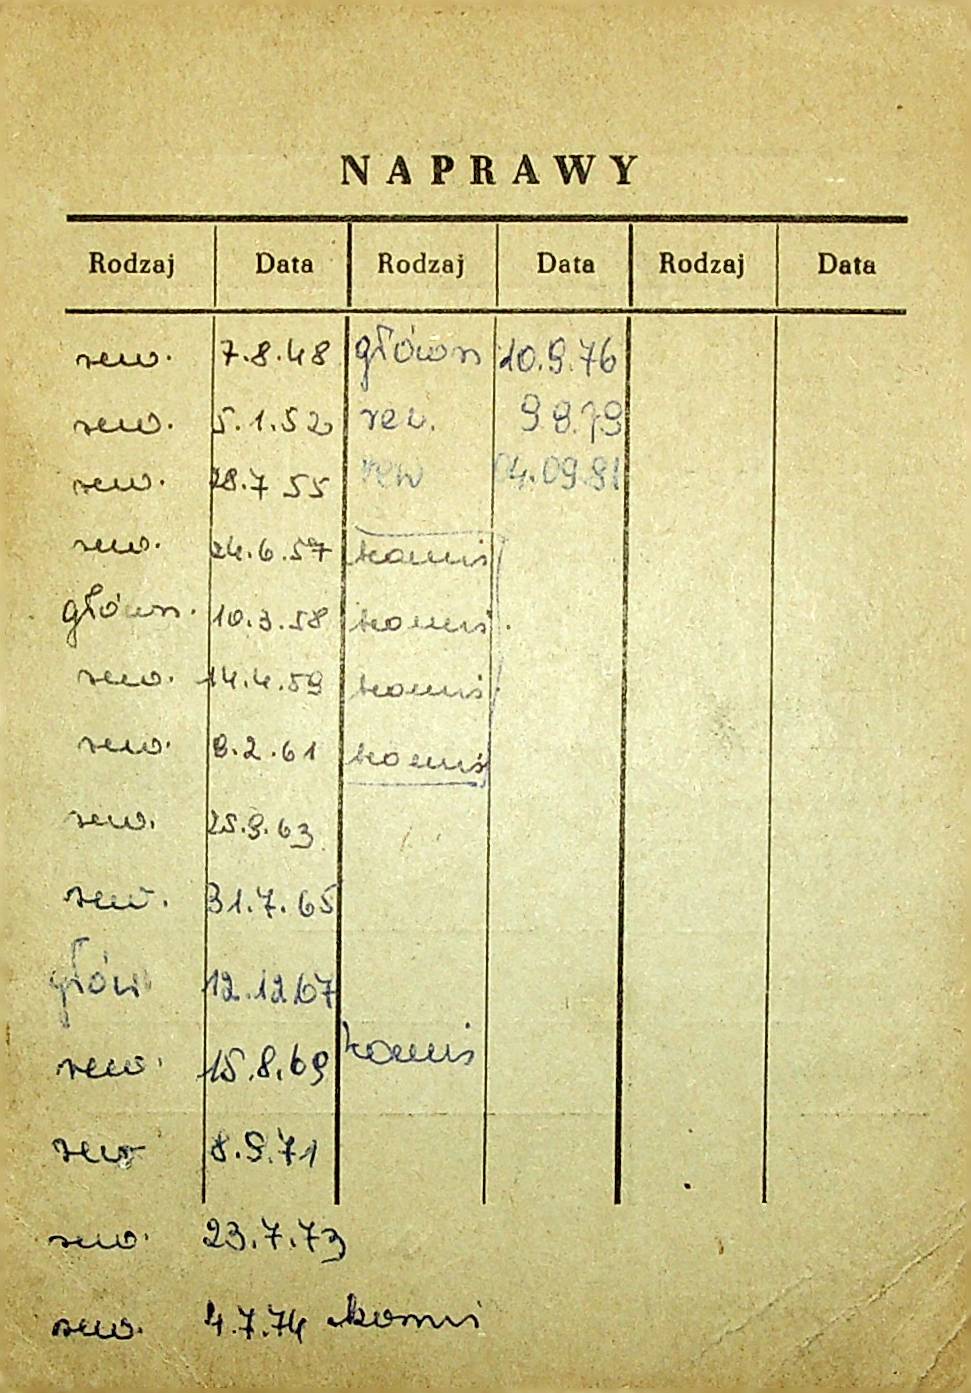 NAPRAWY
Rodzaj Data Rodzaj Data Rodzaj Data
rew. 7.8.48 główn 10.9.76
rew. 5.1.52 rew. 9 9.79
rew. 28.7 55 rew 04.09.81
rew. 24.6.57 komis
główn. 10.3.58 komis
rew. 14.4.59 komis
rew. 9.2.61 komis
rew. 25.9.63
rew. 31.7.65
główn 12.12.67
rew. 15.8.69 komis
rew 8.9.71
rew. 23.7.73
rew. 4.7.74 komis